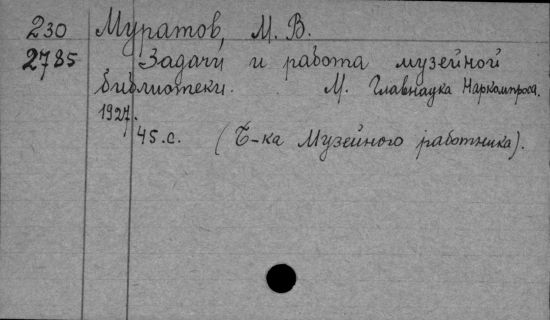 230 Муратов, М. В.
2785 Задачи и работа музейной
библиотеки. М. Главнаука Наркомпроса.
1927.
45.с. (Б-ка Музейного работника).